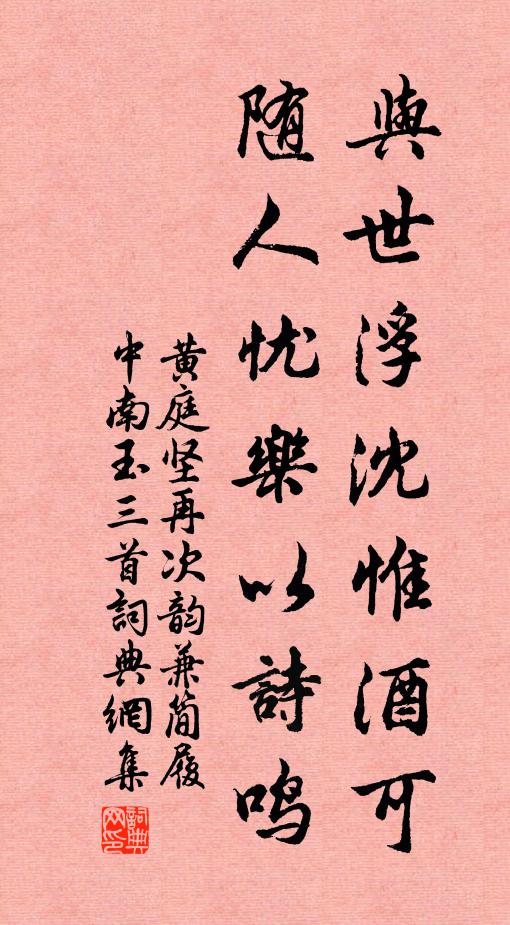 與世浮沈惟酒可
随人忧樂以詩鸣
黄庭坚再次韵兼简履
中南玉三首詞典網集
詞典网印